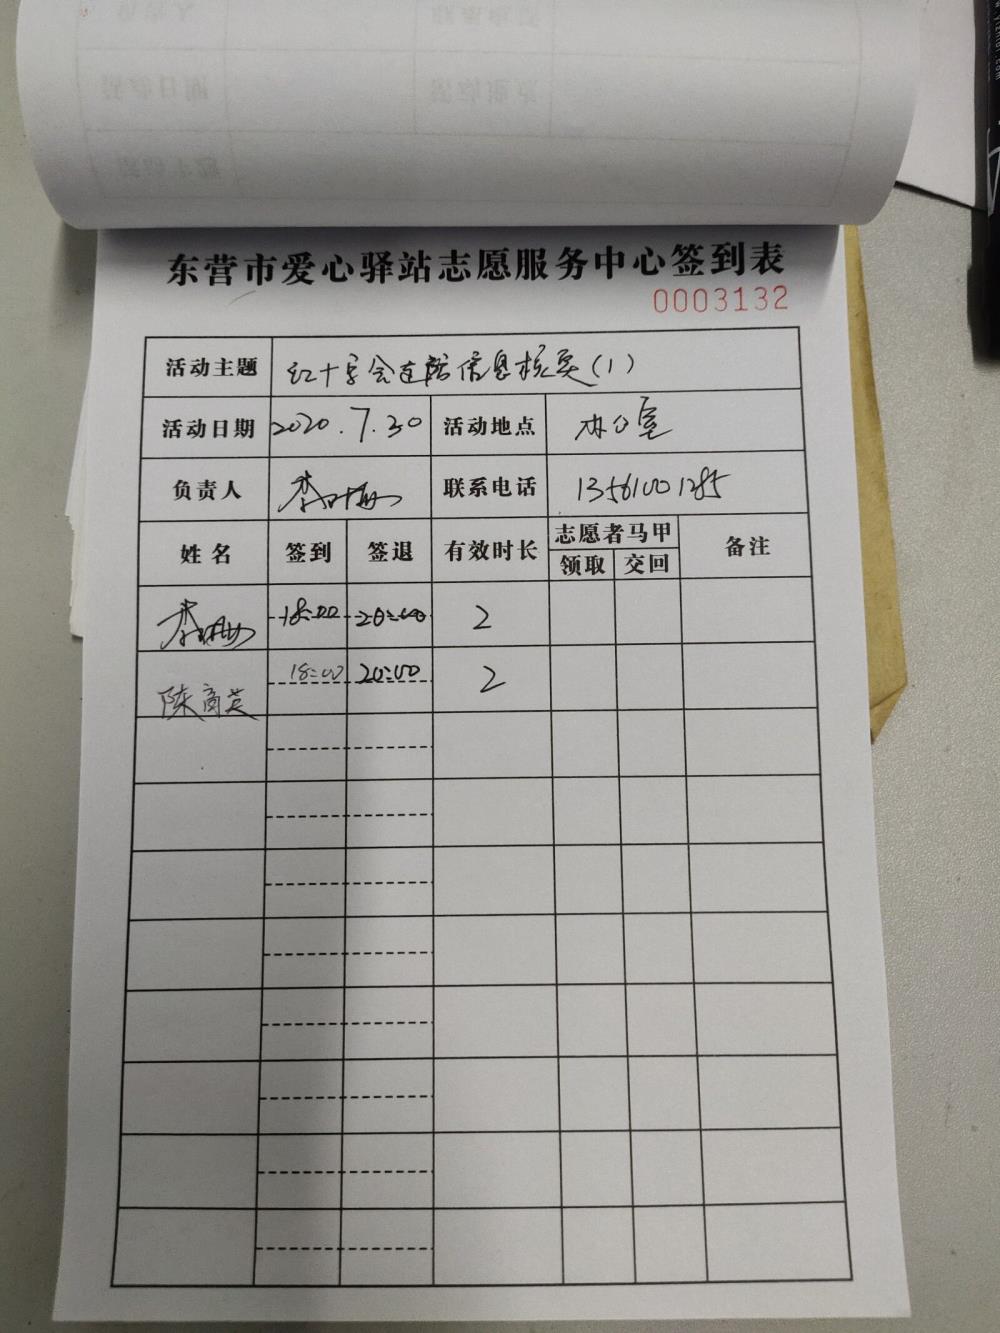 东营市爱心驿站志愿服务中心签到表
0003132
活动主题 红十字会连 信息核实(1)
活动日期 2020.7.30 活动地点 办公室
负责人 李 联系电话 13561001285
姓名 签到 签退 有效时长 志愿者马甲 备注
领取 交回
李 18:00 20:00 2
陈商英 18:00 20:00 2